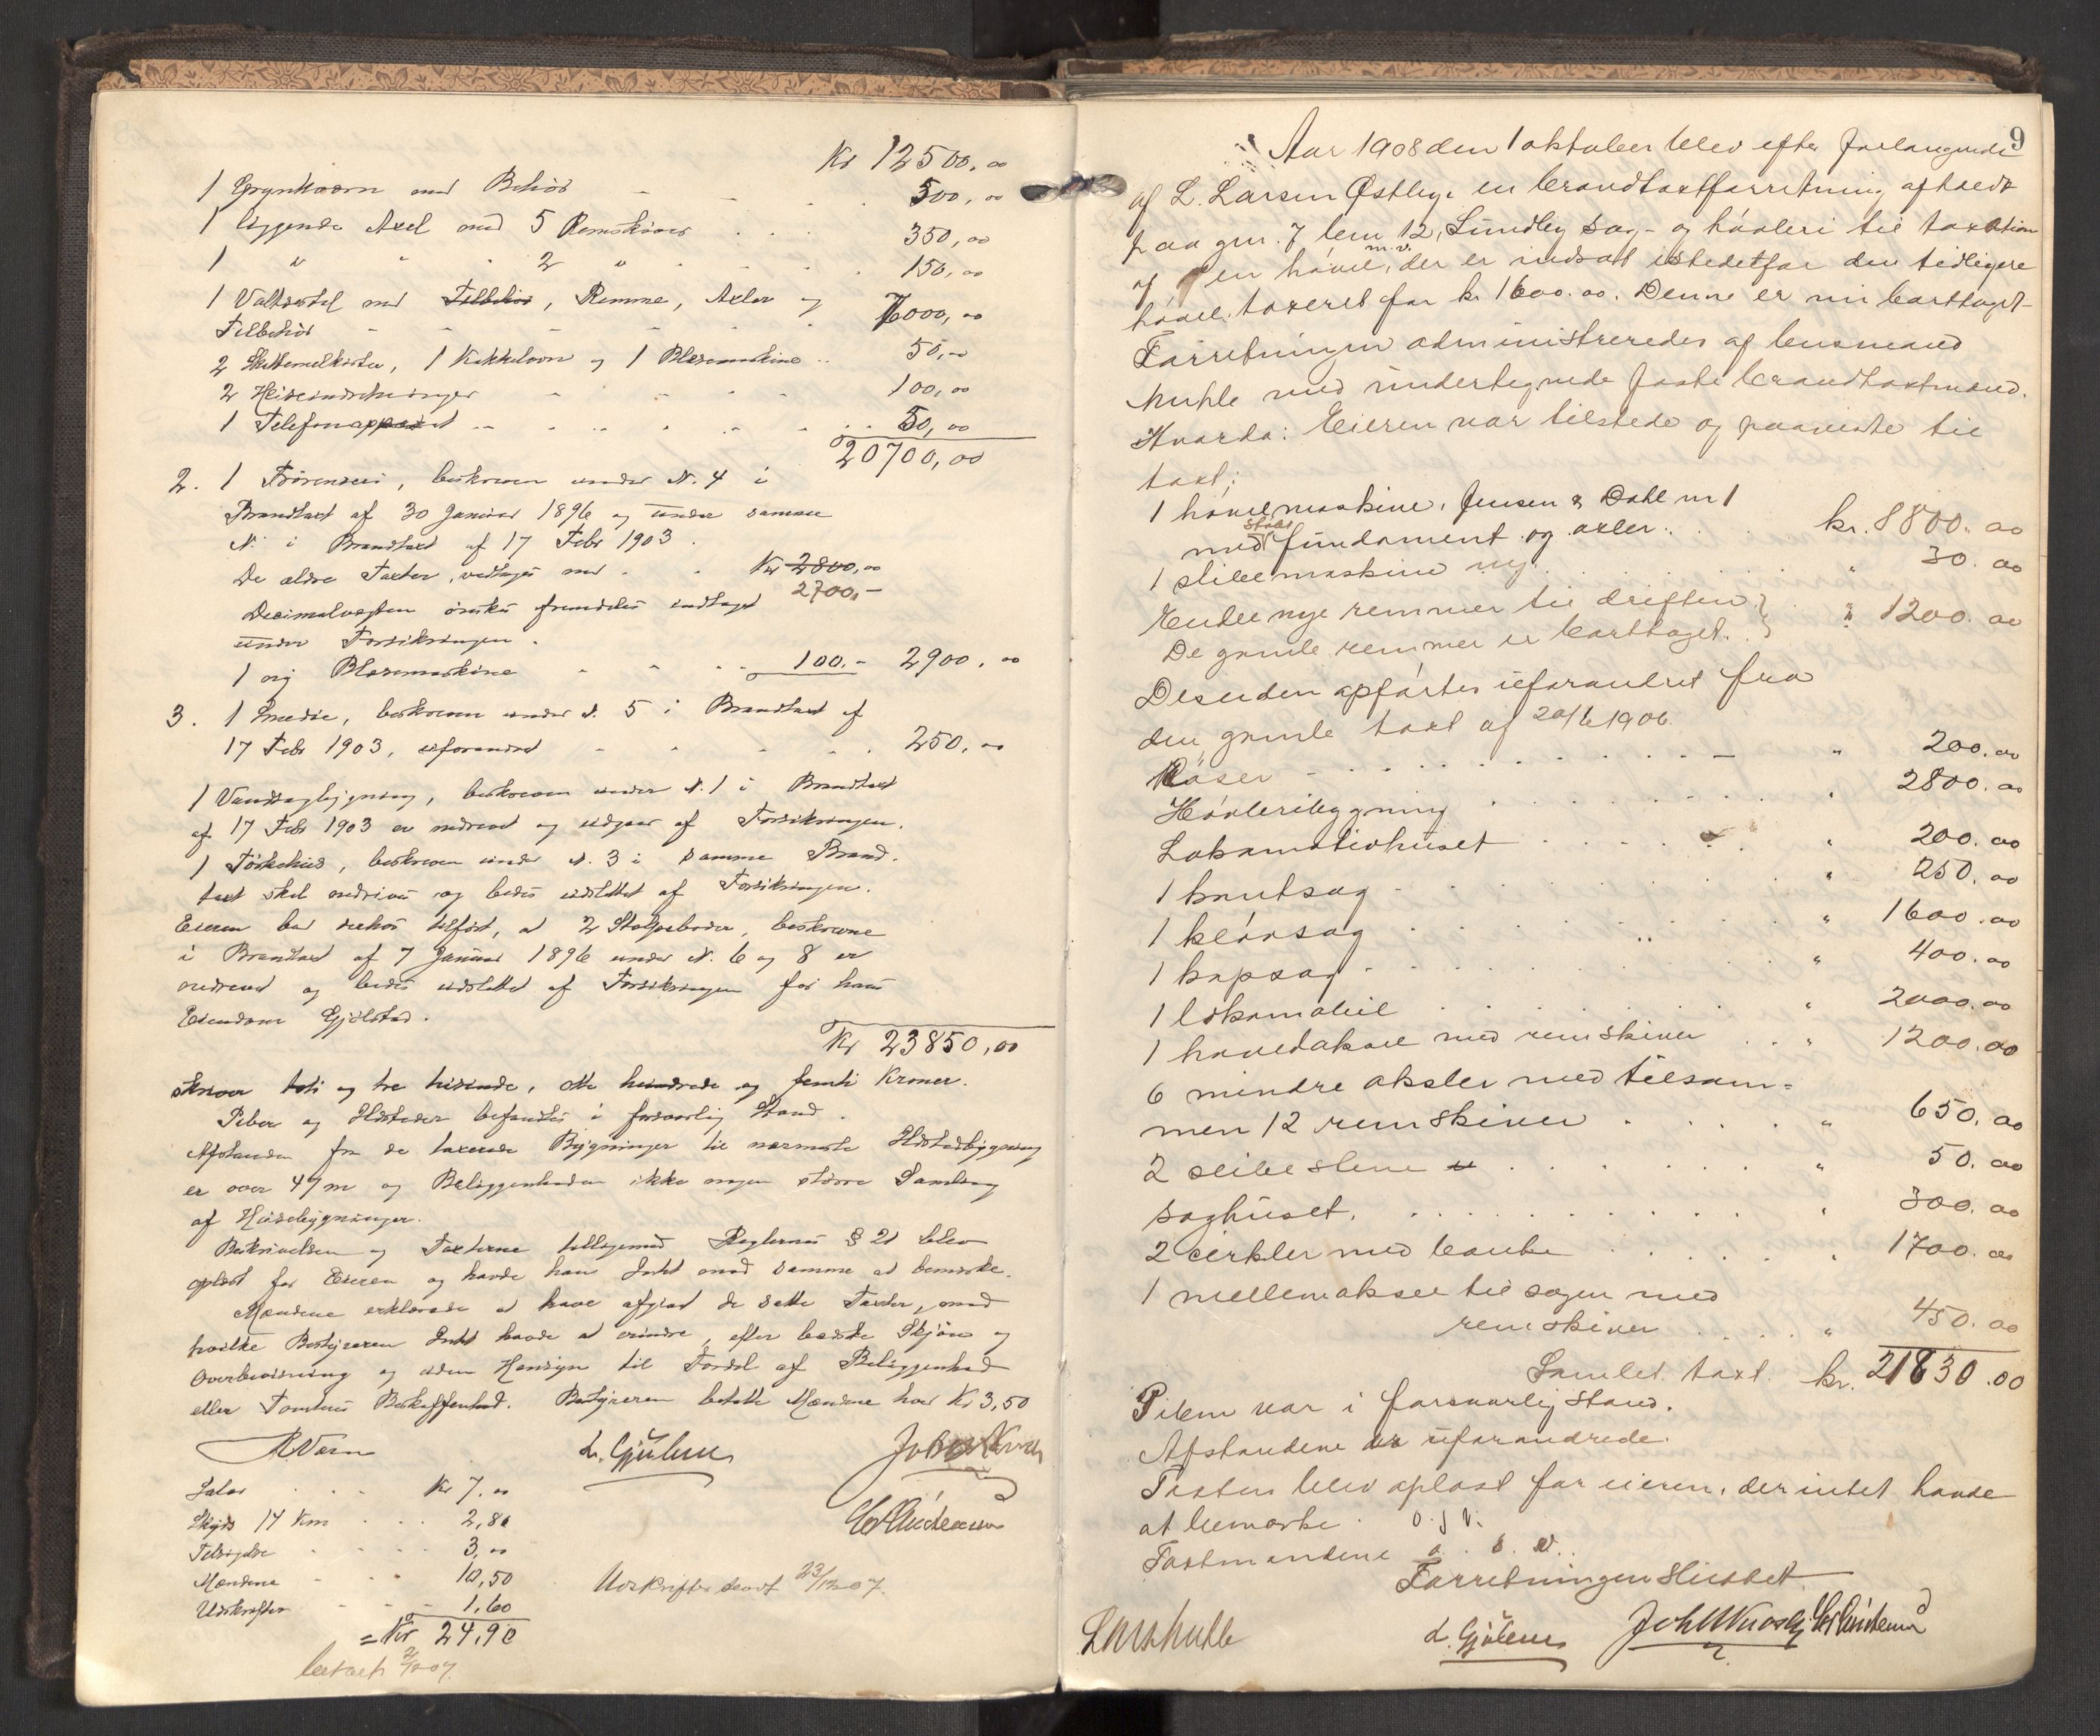 Kr 12500,00
1 Grynkværn med Behør - 500,00
1 liggende Axel med 5 Remskiver 350,00
1 " " 2 " 150,00
1 Valsestol med Tilbehør, Remme, Axler og
Tilbehør 7000,00
2 Skattemelkister, 1 Kakkelovn og 1 Blæsemaskine 50,00
2 Heiseindretninger 100,00
1 Telefonapparat 50,00
20700,00
2. 1 beskreven under N. 4 i
Brandtaxt af 30 Januar 1896 og under samme
N. i Brandtaxt af 17 Febr 1903.
De ældre Taxter, vedtages med Kr 2800,00
2700,-
Decimalvægten ønskes fremdeles indtaget
under Forsikringen.
1 ny Blæsemaskine 100.- 2900,00
3. 1 Smedie, beskreven under N. 5 i Brandtaxt af
17 Febr 1903, uforandret 250,00
1 Vandsagbygning, beskreven under N. 1 i Brandtaxt
af 17 Febr 1903 er nedrevet og udgaar af Forsikringen.
1 Tørkehus, beskreven under N. 3 i samme Brand-
taxt skal nedrives og bedes udslettet af Forsikringen.
Eieren bad derhos tilført, at 2 Stolpeboder, beskrevne
i Brandtaxt af 7 Januar 1896 under N. 6 og 8 er
nedrevet og bedes udslettet af Forsikringen for hans
Eiendom Gjølstad.
Kr 23850,00
skriver toti og tre tusinde, otte hundrede og femti Kroner.
Piber og Ildsteder befandtes i forsvarlig Stand.
Afstanden fra de taxerede Bygninger til nærmeste Ildstedbygning
er over 47 m og Beliggenheden ikke nogen større Samling
af Husebygninger.
Beskrivelsen og Taxterne tilligemed Reglernes § 21 blev
oplæst for Eieren og havde han Intet mod samme at bemærke.
Mændene erklærede at have afgivet de satte Taxter, mod
hvilke Bestyreren Intet havde at erindre, efter bedste Skjøn og
Overbevisning og uden Hensyn til Fordel af Beliggenhed
eller Tomtens Beskaffenhed. Bestyreren betalte Mændene hver Kr 3,50
L. Gjølem
Salær Kr 7.00
Skyds 14 Km 2,80
Tilsigelse 3,00
Mændene 10,50
Udskrifter 1,60
= Kr 24,90
Udskrifter sendt 23/12 07.
betalt 07.
9
Aar 1908 den 1 oktober blev efter forlangende
af L. Larsen Østby, en brandtaxtforretning afholdt
paa gnr. 7 brn 12, Lundby sag- og høvleri til taxation
af en høvel, m.v. der er indsat istedetfor den tidligere
høvel taxeret for kr. 1600.00. Denne er nu borttaget.
Forretningen administreredes af lensmand
Huhle med undertegnede faste brandtaxtmænd.
Hvorda: Eieren var tilstede og paaviste til
taxt:
1 høvelmaskine, Jensen & Dahl nr 1
med støbt fundament og axler kr. 8800.00
1 slibemaskine ny " 30.00
Endel nye remmer til driften } " 1200.00
De gamle remmer er borttaget. }
Desuden opførtes uforandret fra
den gamle taxt af 20/6 1906.
Røser " 200.00
Høvleribygning " 2800.00
Lokomotivhuset " 200.00
1 knutsag " 250.00
1 kløvsag " 1600.00
1 kapsag " 400.00
1 lokomobil " 2000.00
1 hovedaksel med remskiver " 1200.00
6 mindre aksler med tilsam=
men 12 remskiver " 650.00
2 slibestene " 50.00
Saghuset. " 300.00
2 cirkler med benke " 1700.00
1 mellemaksel til sagen med
remskiver " 450.00
Samlet taxt. kr. 21830.00
Piben var i forsvarlig stand.
Afstandene er uforandrede.
Taxten blev oplæst for eieren, der intet havde
at bemærke. o.s.v.
Taxtmændene o.s.v.
Forretningen sluttet
Lars Huhle L. Gjølem